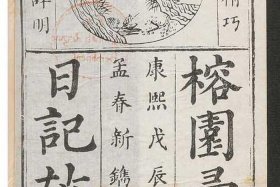 巧
明
榕園
康熙戊辰
孟春新鐫
日記故